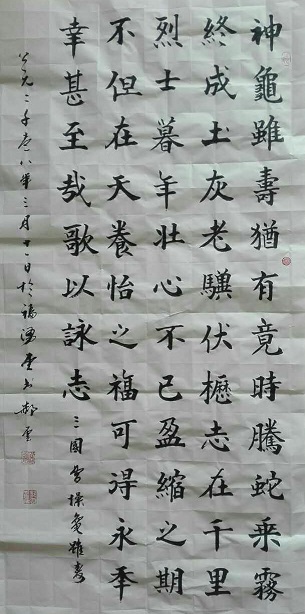 神龜雖壽猶有竟時騰蛇乗霧
終成土灰老驥伏櫪志在千里
烈士暮年壯心不已盈縮之期
不但在天養怡之福可得永秊
幸甚至哉歌以詠志 三國曹操龜雖壽
公元二千壹八年三月十一日於福堂书